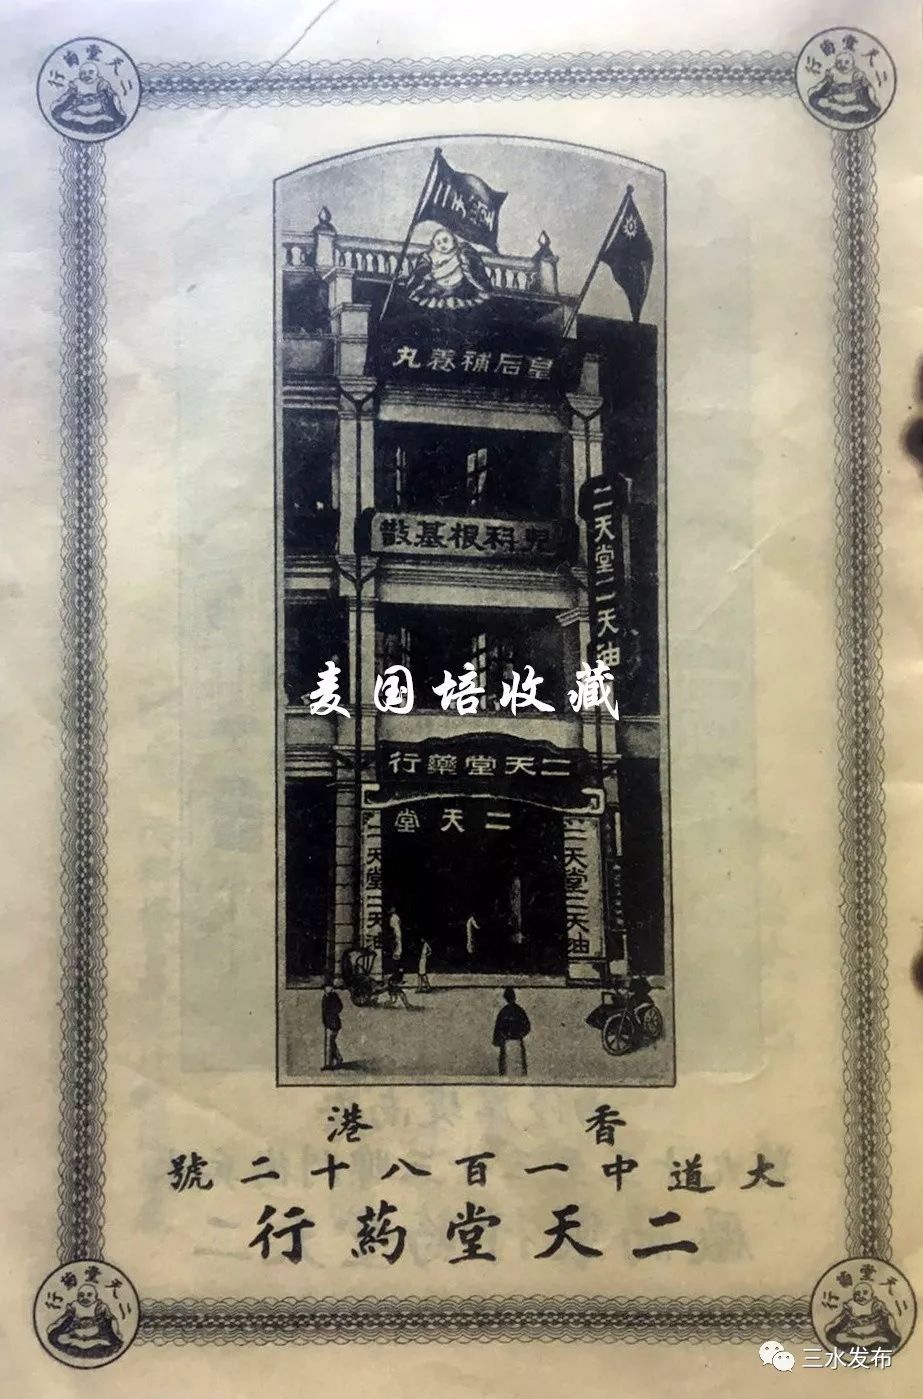 二天堂葯行
二天堂葯行
二天堂
皇后補養丸
兒科根基散
二天堂二天油
麦国培收藏
二天堂藥行
二天堂
二天堂二天油
二天堂二天油
香港
大道中一百八十二號
二天堂葯行
二天堂葯行
二天堂葯行
三水发布